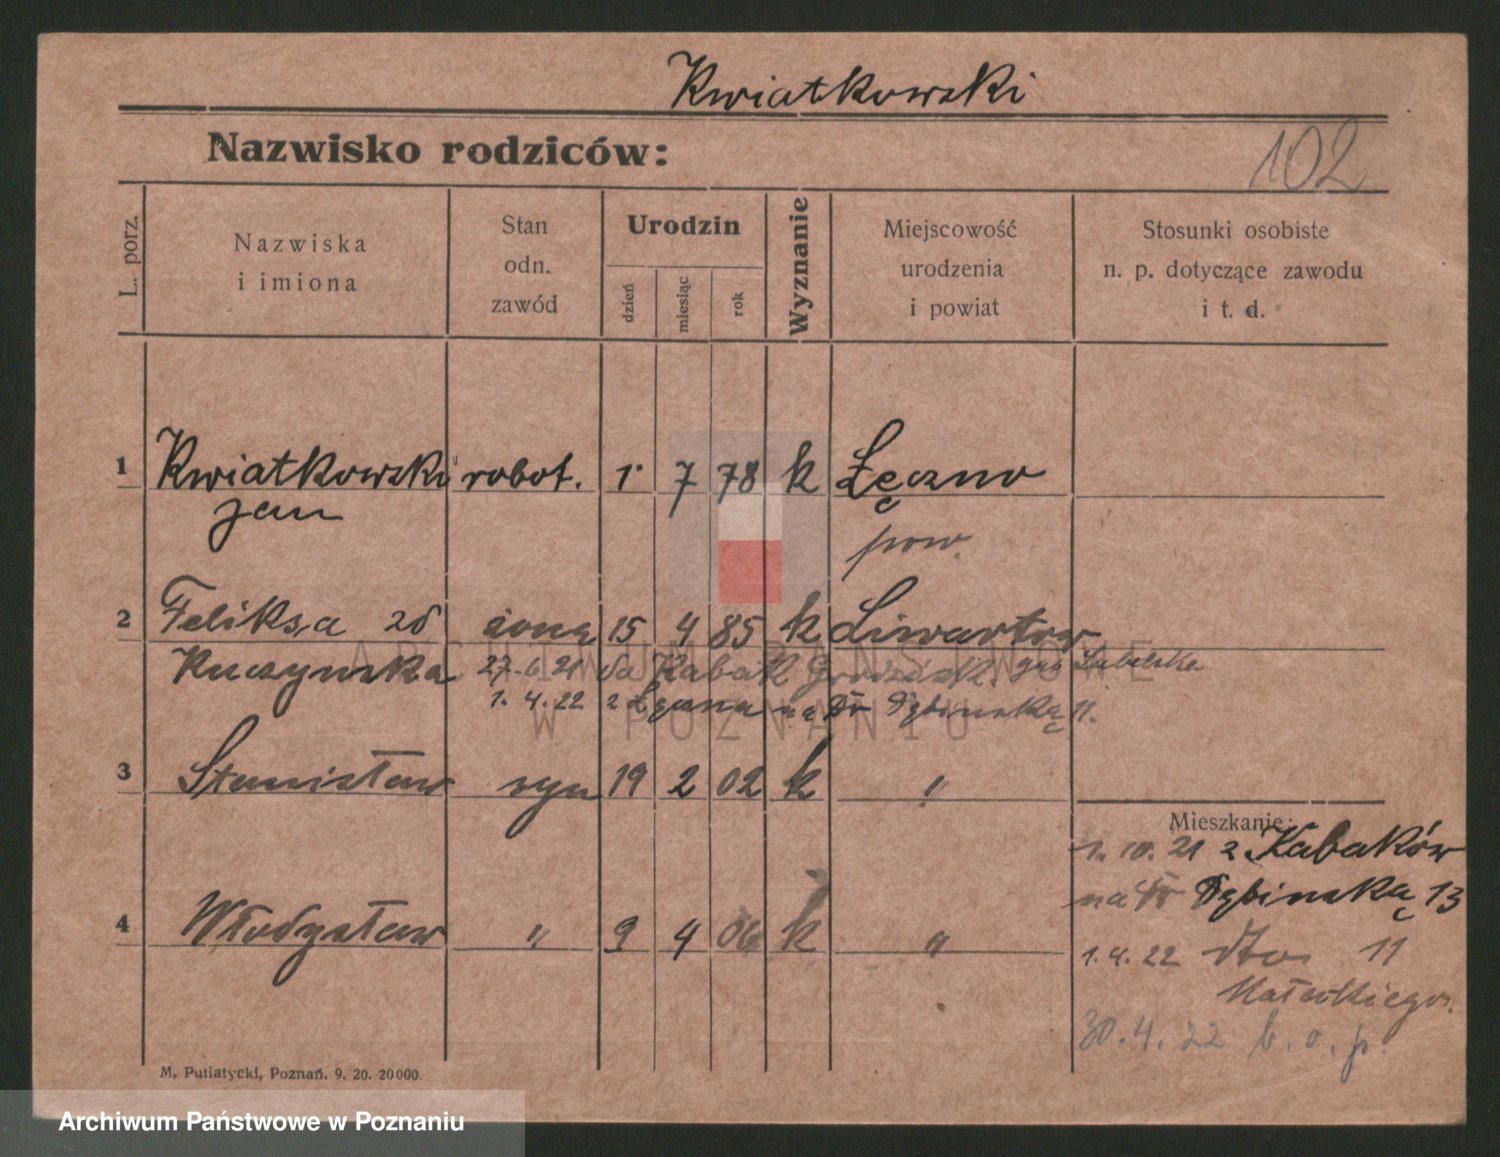 Kwiatkowski
Nazwisko rodziców:
102
L. porz.
Nazwiska
i imiona
Stan
odn.
zawód
Urodzin
dzień
miesiąc
rok
Wyznanie
Miejscowość
urodzenia
i powiat
Stosunki osobiste
n. p. dotyczące zawodu
i t. d.
1 Kwiatkowski robot. 1 7 78 k Łęczno
Jan
pow.
2 Feliksa zd żona 15 4 85 k Liwartow
Kuczyńska 27.6.21 do Kabak gub Lubelska
1. 4. 22 z na Dębińską 11.
3 Stanisław syn 19 2 02 k "
Mieszkanie:
1. 10. 21 z Kabaków
na Dębińską 13
4 Włodysław " 9 4 06 k "
1. 4. 22 dto 11
30. 4. 22 b. o. p.
M. Putiatycki, Poznań. 9. 20. 20000.
ARCHIWUM PAŃSTWOWE
W POZNANIU
Archiwum Państwowe w Poznaniu